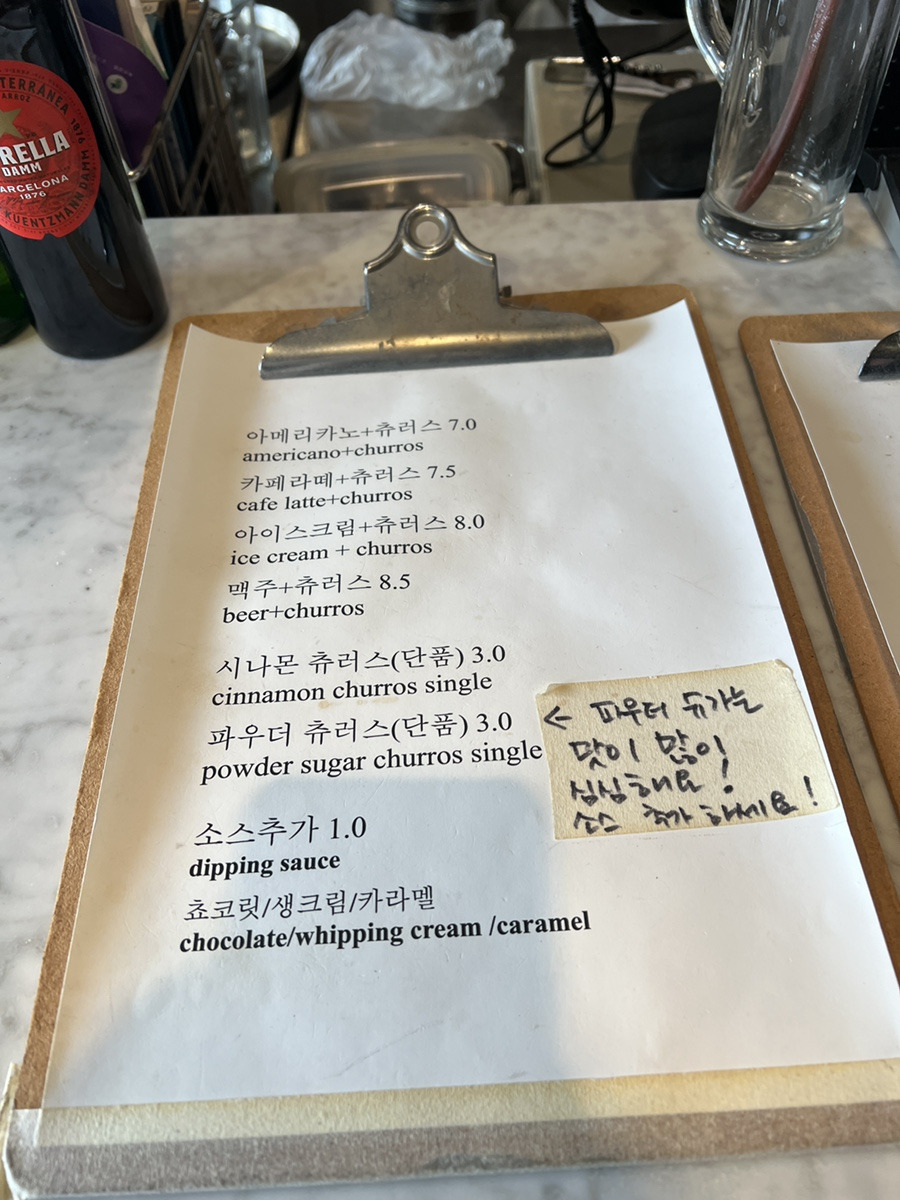 TERRÁNEA 1876
ARROZ
RELLA
DAMM
ARCELONA
1876
KUENTZMANN DAMM
아메리카노+츄러스 7.0
americano+churros
카페라떼+츄러스 7.5
cafe latte+churros
아이스크림+츄러스 8.0
ice cream + churros
맥주+츄러스 8.5
beer+churros
시나몬 츄러스(단품) 3.0
cinnamon churros single
파우더 츄러스(단품) 3.0
powder sugar churros single
← 파우더 슈가는
맛이 많이
심심해요!
소스 추가 하세요!
소스추가 1.0
dipping sauce
쵸코릿/생크림/카라멜
chocolate/whipping cream /caramel